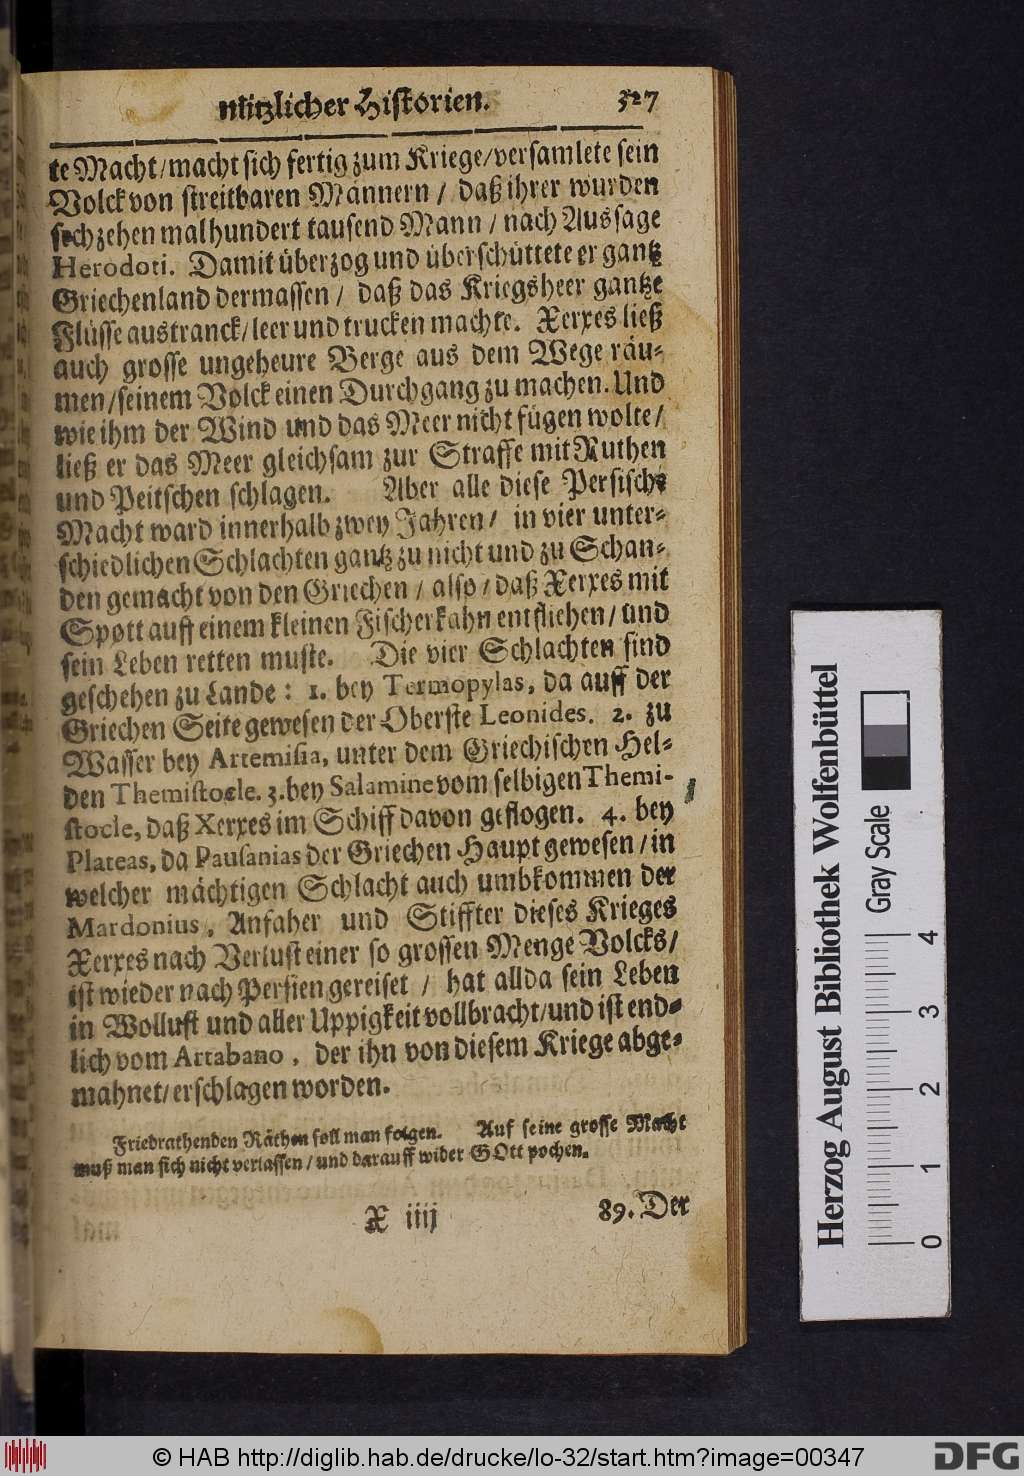 nützlicher Historien. 327
te Macht/macht sich fertig zum Kriege/versamlete sein
Volck von streitbaren Männern / daß ihrer wurden
sechzehen mal hundert tausend Mann / nach Aussage
Herodoti. Damit überzog und überschüttete er gantz
Griechenland dermassen / daß das Kriegsheer gantze
Flüsse austranck/leer und trucken machte. Xerxes ließ
auch grosse ungeheure Berge aus dem Wege räu-
men/seinem Volck einen Durchgang zu machen. Und
wie ihm der Wind und das Meer nicht fügen wolte/
ließ er das Meer gleichsam zur Straffe mit Ruthen
und Peitschen schlagen. Aber alle diese Persische
Macht ward innerhalb zwey Jahren/ in vier unter-
schiedlichen Schlachten gantz zu nicht und zu Schan-
den gemacht von den Griechen / also / daß Xerxes mit
Spott auff einem kleinen Fischerkahn entfliehen/und
sein Leben retten muste. Die vier Schlachten sind
geschehen zu Lande: 1. bey Termopylas, da auff der
Griechen Seite gewesen der Oberste Leonides. 2. zu
Wasser bey Artemisia, unter dem Griechischen Hel-
den Themistocle. 3. bey Salamine vom selbigen Themi-
stocle, daß Xerxes im Schiff davon geflogen. 4. bey
Plateas, da Pausanias der Griechen Haupt gewesen/in
welcher mächtigen Schlacht auch umbkommen der
Mardonius, Anfaher und Stiffter dieses Krieges
Xerxes nach Verlust einer so grossen Menge Volcks/
ist wieder nach Persien gereiset / hat allda sein Leben
in Wollust und aller Uppigkeit vollbracht/und ist end-
lich vom Artabano, der ihn von diesem Kriege abge-
mahnet/erschlagen worden.
Friedrathenden Räthen soll man folgen. Auf seine grosse Macht
muß man sich nicht verlassen/und darauff wider GOtt pochen.
X iiij 89. Der
Herzog August Bibliothek Wolfenbüttel
Gray Scale
0 1 2 3 4
© HAB http://diglib.hab.de/drucke/lo-32/start.htm?image=00347
DFG